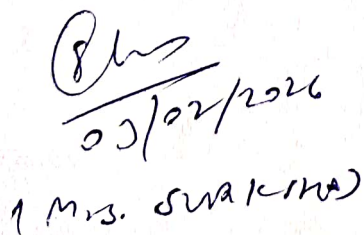 03/02/2026
(Mrs. SURAKSHA)